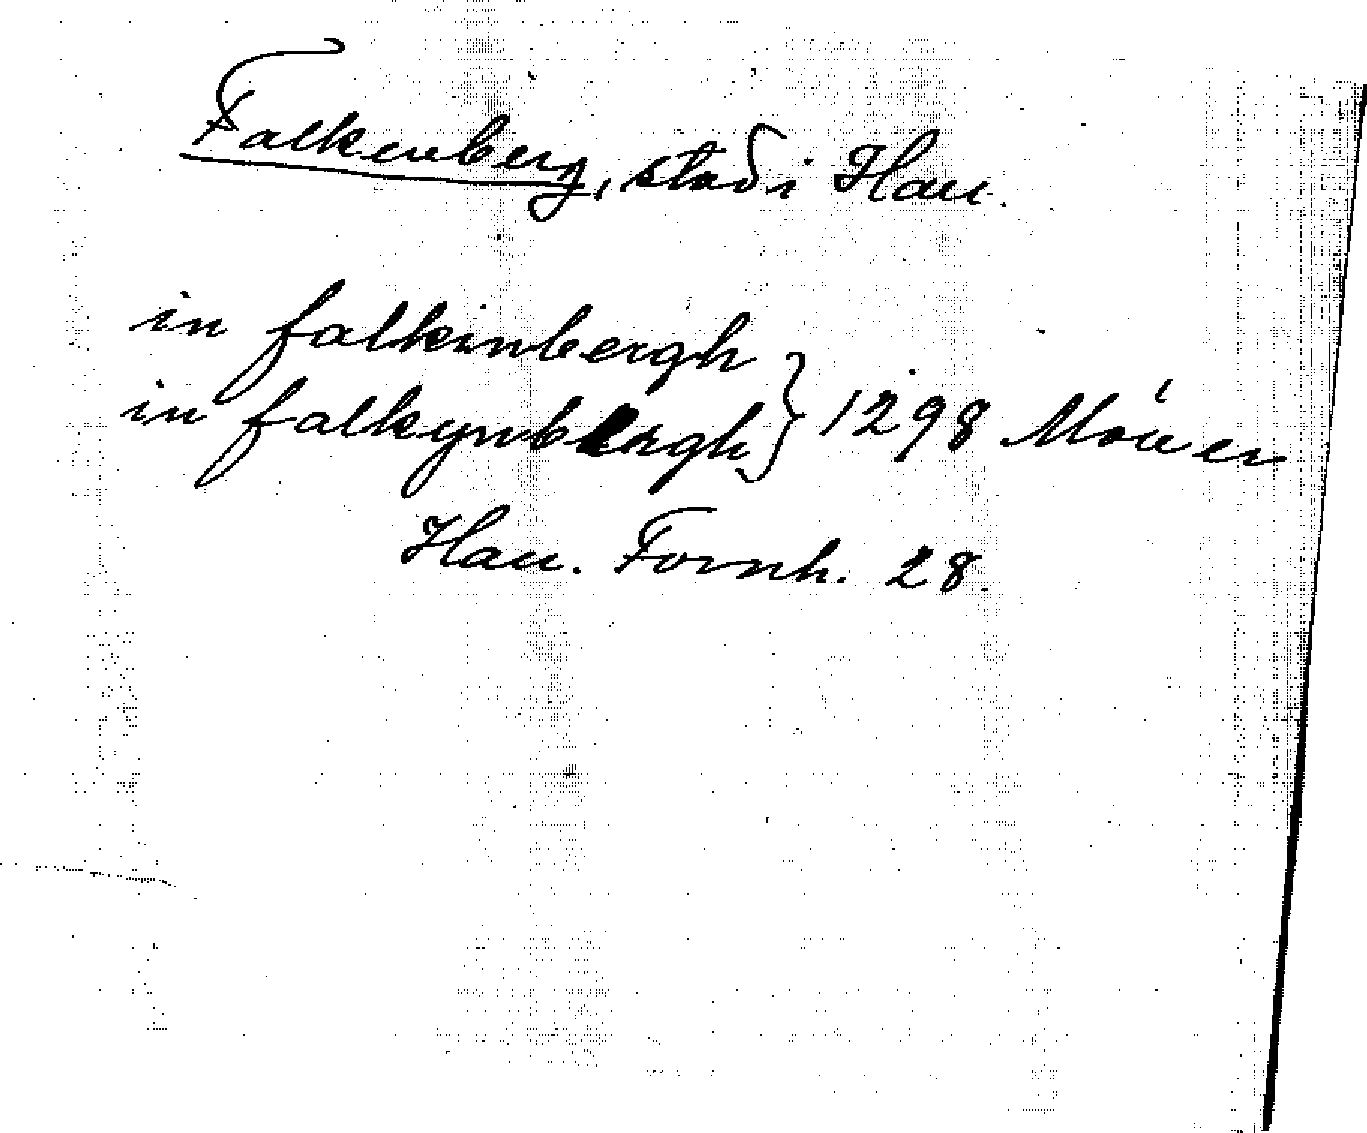 Falkenberg, stad i Hall.
in falkinbergh
in falkynbergh } 1298 Möller
Hall. Fornh. 28.